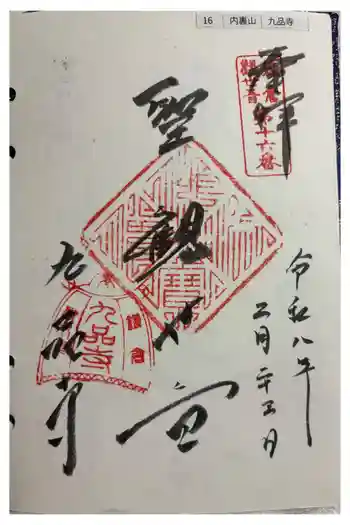 16 内裏山 九品寺
奉拝
鎌倉第十六番
観世音
聖観世音
令和八年
二月二十三日
九品寺
鎌倉
九品寺